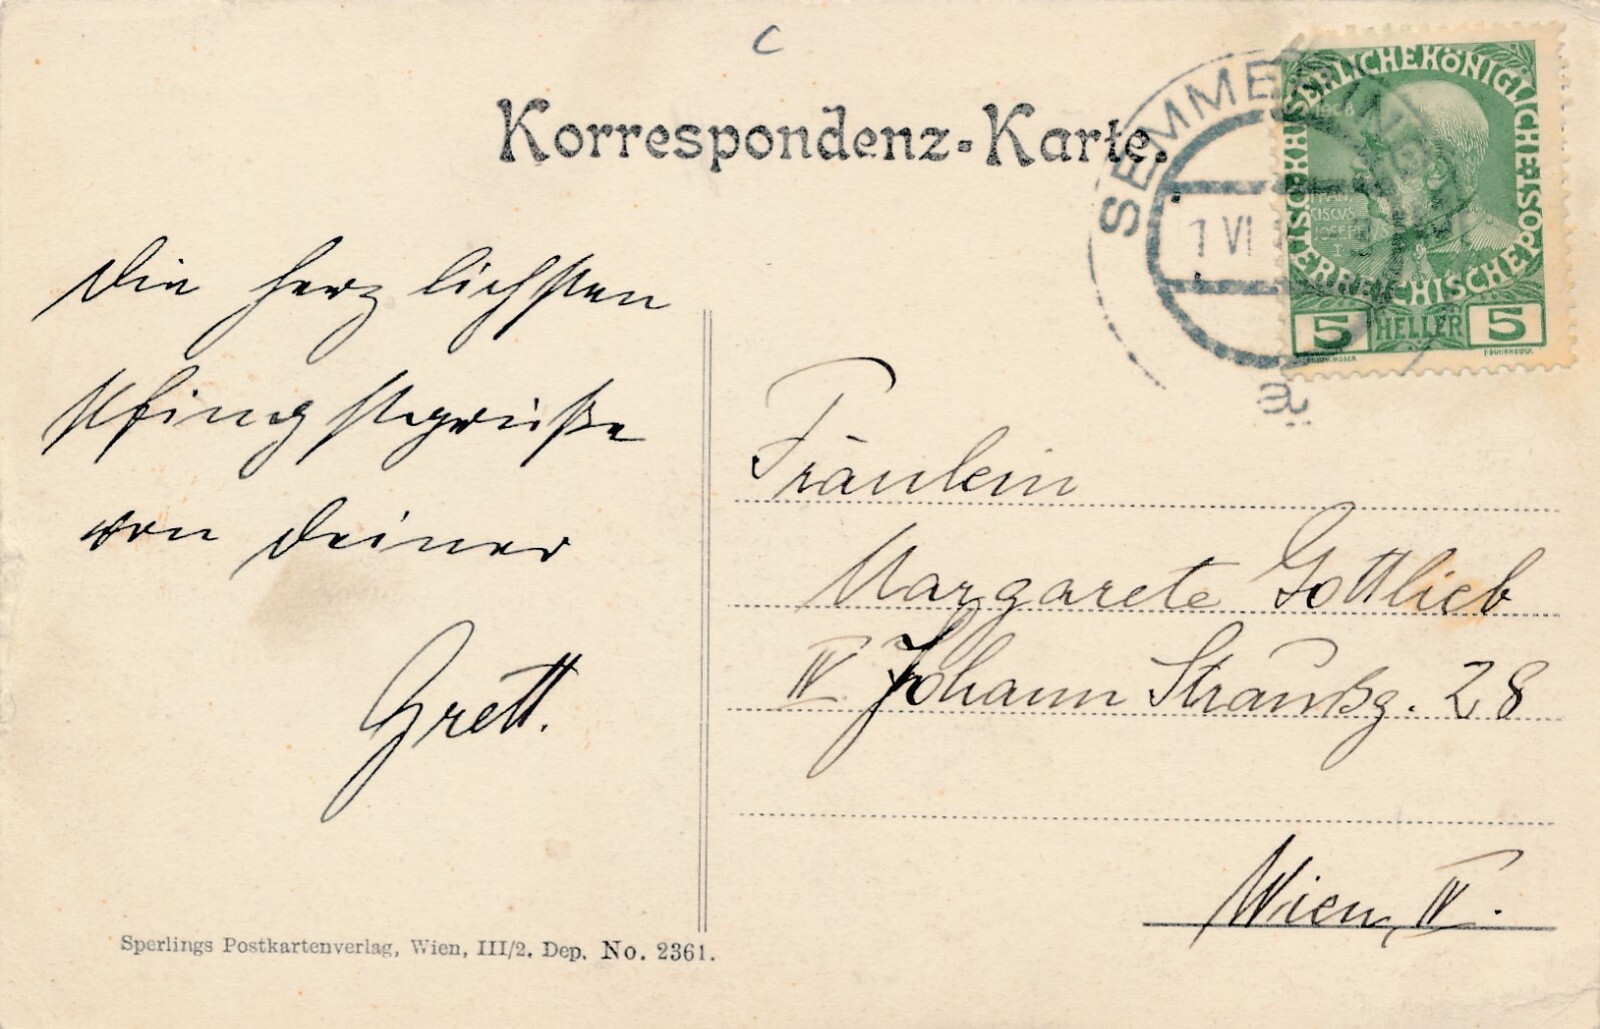 C
Korrespondenz-Karte.
SEMMERING
1 VI
æ
KAISERLICHE KÖNIGLICHE
ÖSTERREICHISCHE POST
1908
FRAN
CISCVS
IOSEPHVS
I
5 HELLER 5
Die herzlichsten
Pfingstgrüße
von Deiner
Grett.
Fräulein
Margarete Gottlieb
IV. Johann Straußg. 28
Wien, IV.
Sperlings Postkartenverlag, Wien, III/2. Dep. No. 2361.